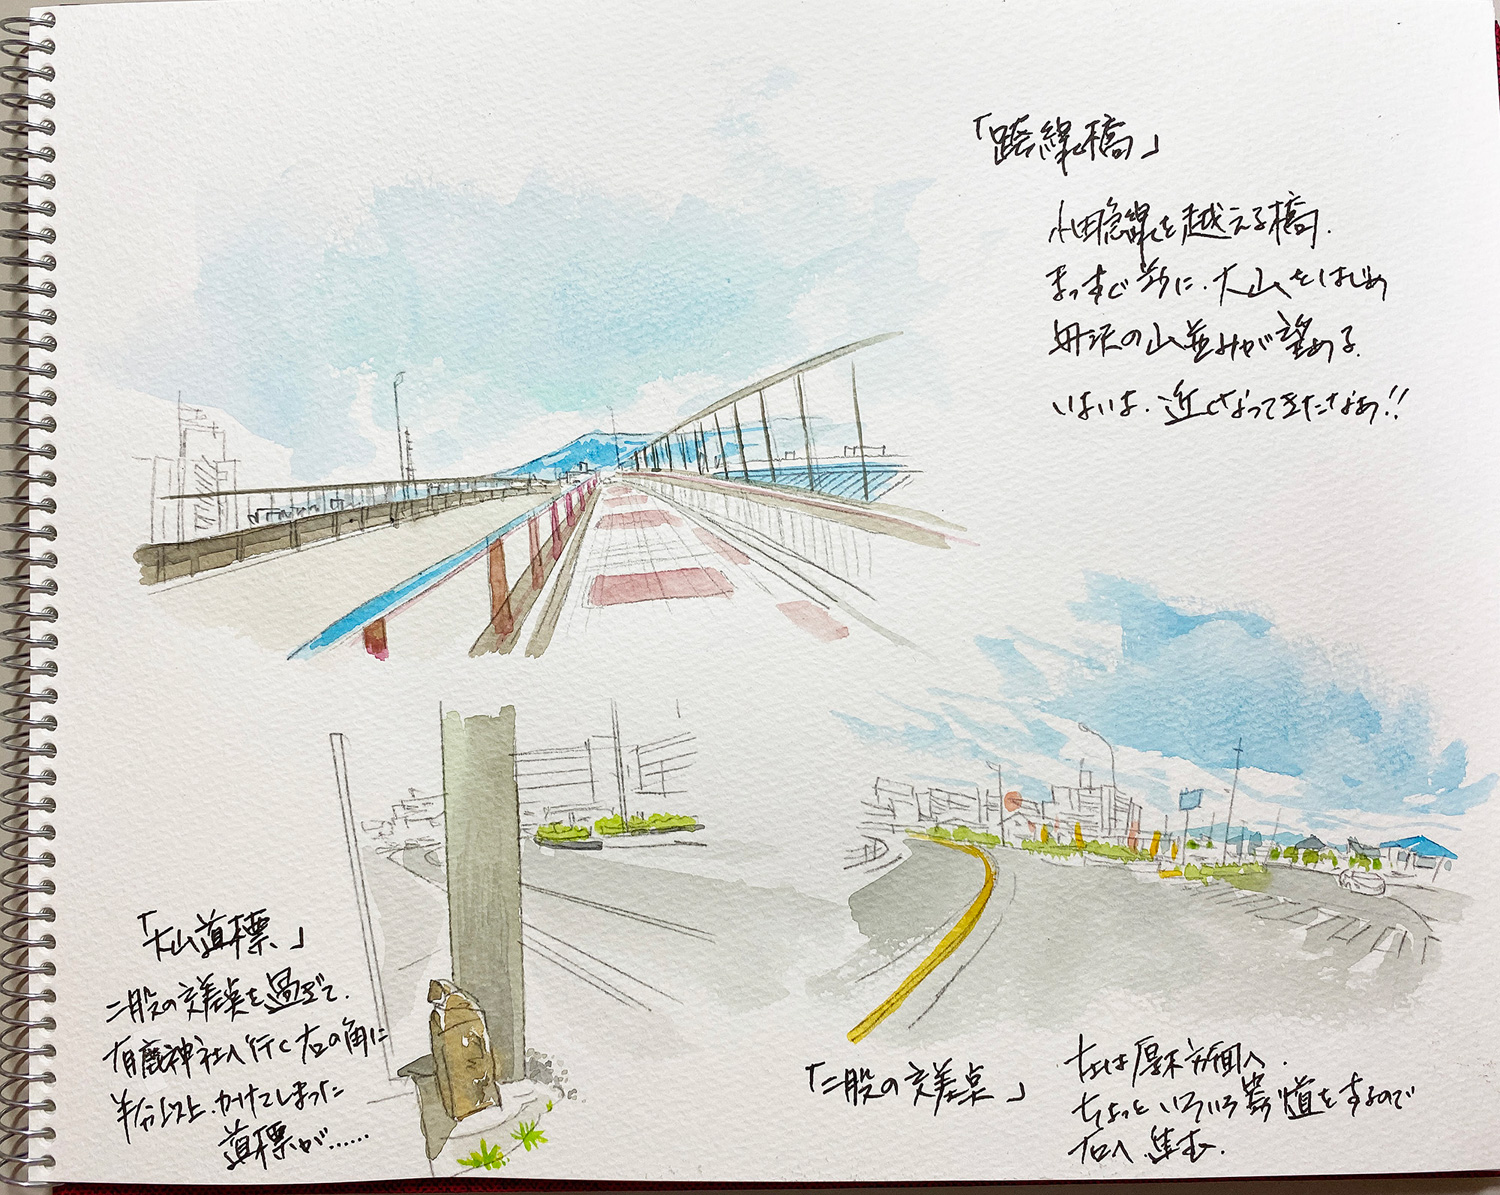 「跨線橋」
小田急線を越える橋.
まっすぐ前に、大山をはじめ
丹沢の山並みが望める.
いよいよ、近くなってきたなあ!!
「大山道標」
二股の交差点を過ぎて、
有鹿神社へ行く右の角に
半分以上、かけてしまった
道標が……
「二股の交差点」
左は厚木方面へ.
ちょっといろいろ寄り道をするので
右へ進む.